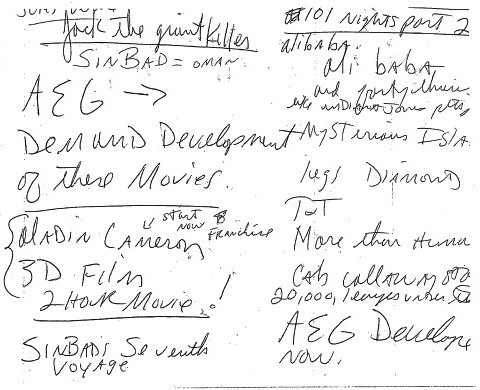 Jack the giant Killer
SINBAD = OMAN
AEG →
Demand Development
of these Movies.
start now
Aladin Cameron Franchise
3D Film
2 HOUR Movie!
SINBADS Seventh
VOYAGE
#101 Nights part 2
alibaba
ali baba
and forty thieves
like indiana Jones
MYSTERIOUS ISLA
legs Diamond
TUT
More than Huma
CAB Calloway
20,000 leagues under
AEG Develope
NOW.